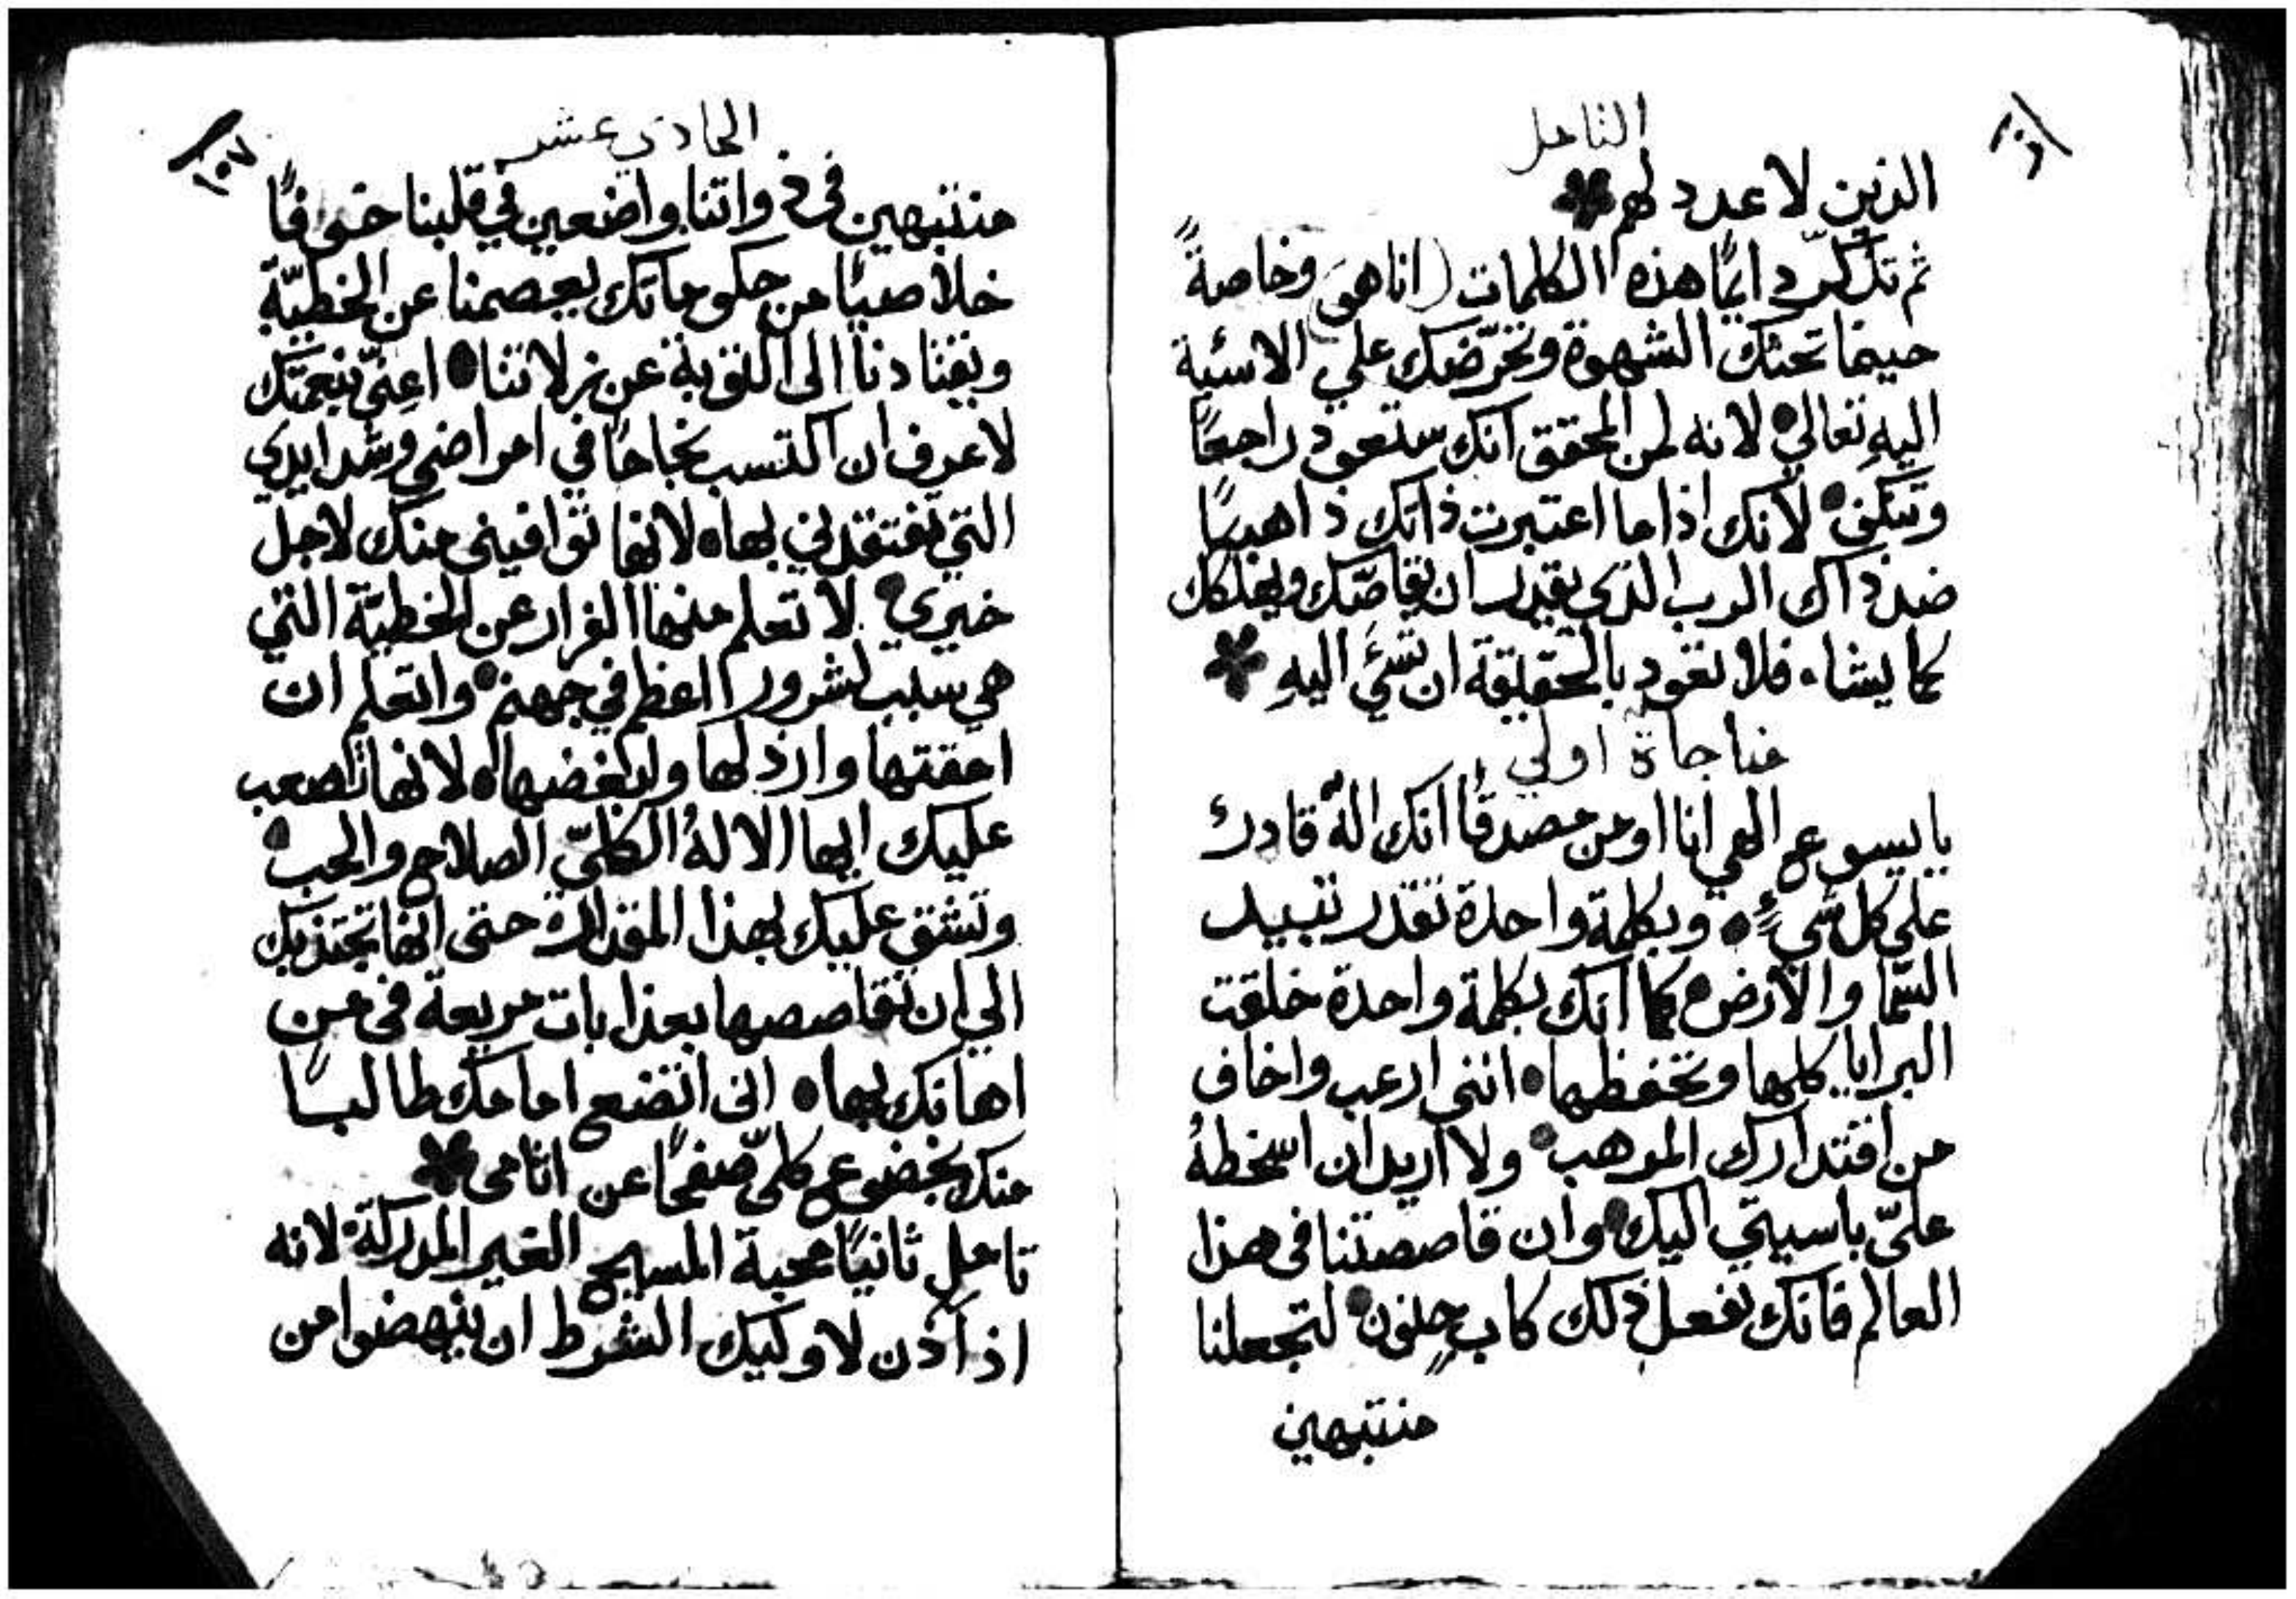 التامل
الذين لا عدد لهم
ثم تذكر دايمًا هذه الكلمات (انا هو) وخاصةً
حينما تحثك الشهوة وتحرّضك علي الاسئية
اليهِ تعالي لانه لمن المحقق انك ستعود راجعًا
وتنكف لأنك اذا ما اعتبرت ذاتك ذاهبًا
ضد ذاك الرب الذي يقدر ان يقاصّك ويهلكك
كما يشاء فلا تعود بالحقيقة ان تسئَ اليهِ
مناجاة اولي
يا يسوع الهي انا اومن مصدقًا انك الهٌ قادرٌ
علي كل شيءٍ وبكلمة واحدة تقدر تبيد
السّما والأرض كما انك بكلمة واحدة خلقت
البرايا كلها وتحفظها انني ارعب واخاف
من اقتدارك المرهب ولا اريد ان اسخطهُ
عليّ باسيتي اليك وان قاصصتنا في هذا
العالم فانك تفعل ذلك كابٍ حنون لتجعلنا
منتبهين
الحادي عشر
١٥٧
منتبهين في ذواتنا واضعين في قلبنا خوفًا
خلاصيًا من حكوماتك يعصمنا عن الخطيّة
ويقتادنا الى التوبة عن زلاتنا اعِنّي بنعمتك
لاعرف ان اكتسب نجاحًا في امراضي وشدايدي
التي تفتقدني بها لانها توافيني منك لاجل
خيري لاتعلم منها الفرار عن الخطيّة التي
هي سبب لشرور اعظم في جهنم واتعلم ان
امقتها وارذلها وابغضها لانها تصعب
عليك ايها الالهُ الكليّ الصلاح والحب
وتشق عليك بهذا المقدار حتى انها تجتذبك
الي ان تقاصصها بعذابات مريعة في من
اهانك بها اني اتضع امامك طالبًا
منك بخضوع كليّ صفحًا عن اثامي
تامل ثانيًا محبة المسيح الغير المدركة لانه
اذ أذن لاوليك الشرط ان ينهضوا من